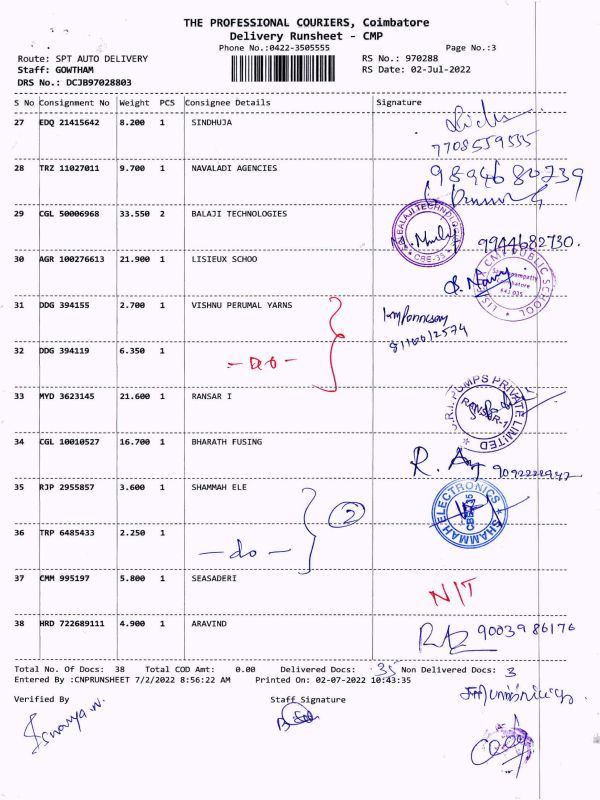 THE PROFESSIONAL COURIERS, Coimbatore
Delivery Runsheet - CMP
Phone No.:0422-3505555
Page No.:3
Route: SPT AUTO DELIVERY
RS No.: 970288
Staff: GOWTHAM
RS Date: 02-Jul-2022
DRS No.: DCJB97028803
S No Consignment No Weight PCS Consignee Details Signature
27 EDQ 21415642 8.200 1 SINDHUJA
7708559535
28 TRZ 11027011 9.700 1 NAVALADI AGENCIES 9894680739
29 CGL 50006968 33.550 2 BALAJI TECHNOLOGIES
BALAJI TECHNOLOG
CBE-35
9944682730.
30 AGR 100276613 21.900 1 LISIEUX SCHOO
LISIEUX CMI PUBLIC SCHOOL
31 DDG 394155 2.700 1 VISHNU PERUMAL YARNS
32 DDG 394119 6.350 1
- do -
33 MYD 3623145 21.600 1 RANSAR I
S.R.I. PUMPS PRIVATE LIMITED
RANSAR-1
34 CGL 10010527 16.700 1 BHARATH FUSING
35 RJP 2955857 3.600 1 SHAMMAH ELE
2
SHAMMAH ELECTRONICS
CBE-35
36 TRP 6485433 2.250 1
- do -
37 CMM 995197 5.800 1 SEASADERI N/T
38 HRD 722689111 4.900 1 ARAVIND 9003986176
Total No. Of Docs: 38 Total COD Amt: 0.00 Delivered Docs: 35 Non Delivered Docs: 3
Entered By :CNPRUNSHEET 7/2/2022 8:56:22 AM Printed On: 02-07-2022 10:43:35
Verified By Staff Signature